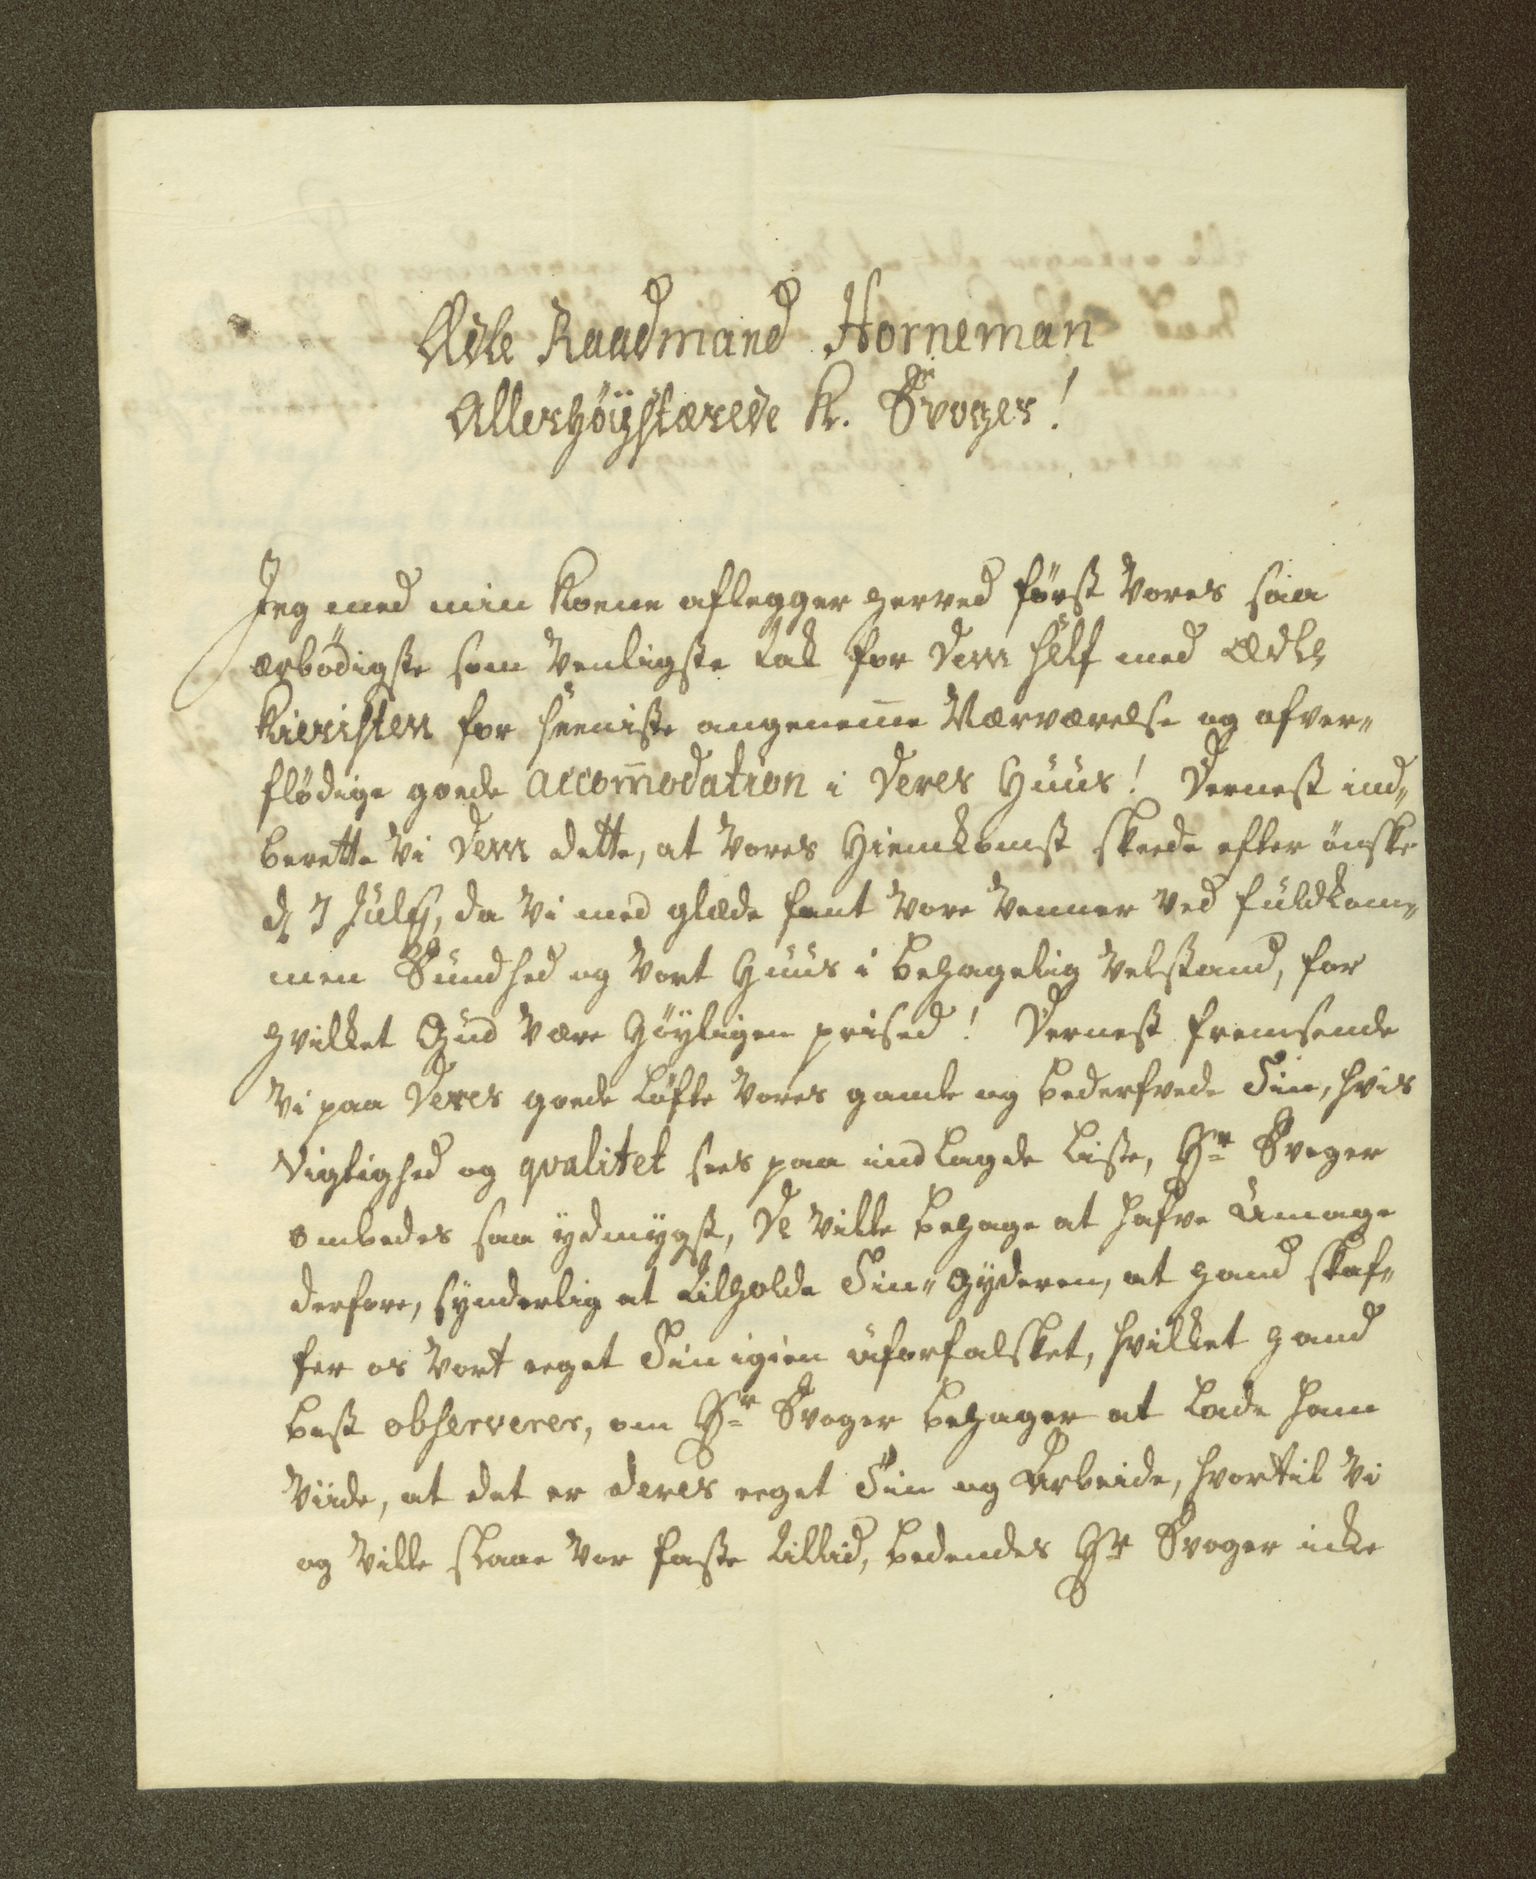 Ædle Raadmand Horneman
Allerhöÿstærede K. Svoger!
Jeg med min Kone aflegger herved först Vores saa
ærbödigste som Venligste tak for Dem sëlf med Ædle
Kieristen for seeniste angenemme Værværelse og ofver„
flödige goede accom̄odation i Deres Huus! Dernest ind„
berette Vi Dem dette, at Vores Hiemkomst skeede efter önske
d 7 Julÿ, da Vi med glæde fant Vore Venner ved fuldkom„
men Sundhed og Vort Huus i behagelig Velstand, for
hvilket Gud Være Höÿligen prised! Dernest fremsende
Vi paa Deres goede Löfte Vores gamle og bederfvede Tin, hvis
Vigtighed og qvalitet sees paa indlagde Liste, Hr Svoger
ombedes saa ÿdmÿgst, De Ville behage at hafve Umage
derfore, sÿnderlig at tilholde Tin„Gÿderen, at hand skaf„
fer os Vort eeget Tin igien uforfalsket, hvilket hand
best observerer, om Hr Svoger behager at lade ham
Viide, at det er deres eeget Tin og Arbeide, hvortil Vi
og Ville slaae Vor faste tillid, bedendes Hr Svoger icke